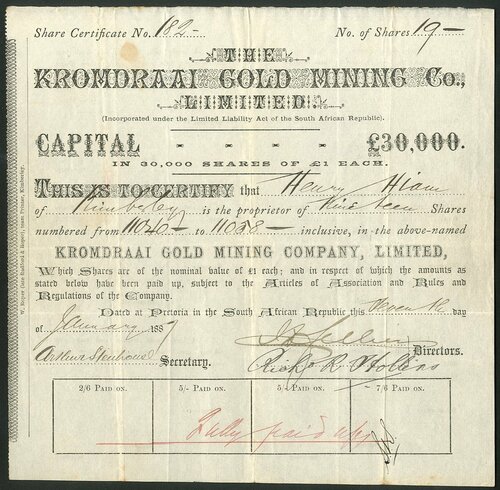 Share Certificate No. 182 — No. of Shares 19 —
THE
KROMDRAAI GOLD MINING Co.,
LIMITED.
(Incorporated under the Limited Liability Act of the South African Republic).
CAPITAL - - - - £30,000.
IN 30,000 SHARES OF £1 EACH.
THIS IS TO CERTIFY that Henry Hiam
of Kimberley is the proprietor of Nineteen Shares
numbered from 11020 — to 11038 — inclusive, in the above-named
KROMDRAAI GOLD MINING COMPANY, LIMITED,
Which Shares are of the nominal value of £1 each; and in respect of which the amounts as
stated below have been paid up, subject to the Articles of Association and Rules and
Regulations of the Company.
Dated at Pretoria in the South African Republic this day
of January 1887
Directors.
Arthur Stenhouse Secretary. Richd R. Hollins
2/6 PAID ON. 5/- PAID ON. 5/- PAID ON. 7/6 PAID ON.
Fully paid up